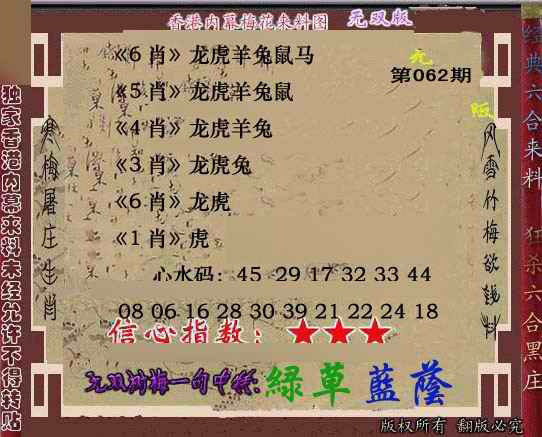 香港内幕梅花来料图 无双版
《6肖》龙虎羊兔鼠马
第062期
《5肖》龙虎羊兔鼠
《4肖》龙虎羊兔
《3肖》龙虎兔
《6肖》龙虎
《1肖》虎
心水码：45 29 17 32 33 44
08 06 16 28 30 39 21 22 24 18
信心指数：★★★
綠草藍蔭
版权所有 翻版必究
独家香港内幕来料未经允许不得转贴
寒梅屠庄生肖
风雪竹梅欲钱料
经典六合来料 狂杀六合黑庄